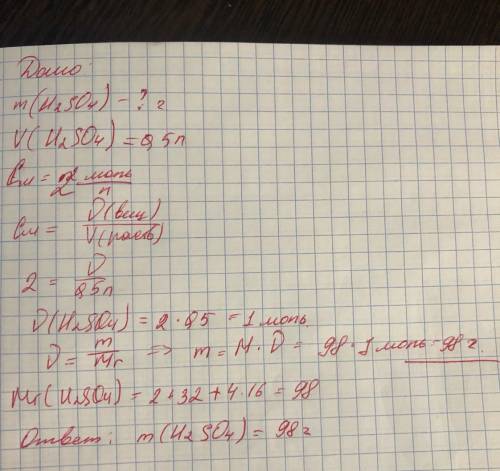 Дано:
m(H₂SO₄) - ? г
V(H₂SO₄) = 0,5 л
Cм = 2 моль/л
Cм = ν(вещ)/V(раств)
2 = ν/0,5л
ν(H₂SO₄) = 2 · 0,5 = 1 моль.
ν = m/Mr => m = M · ν = 98 · 1 моль = 98 г.
Mr(H₂SO₄) = 2 + 32 + 4 · 16 = 98
Ответ: m(H₂SO₄) = 98 г